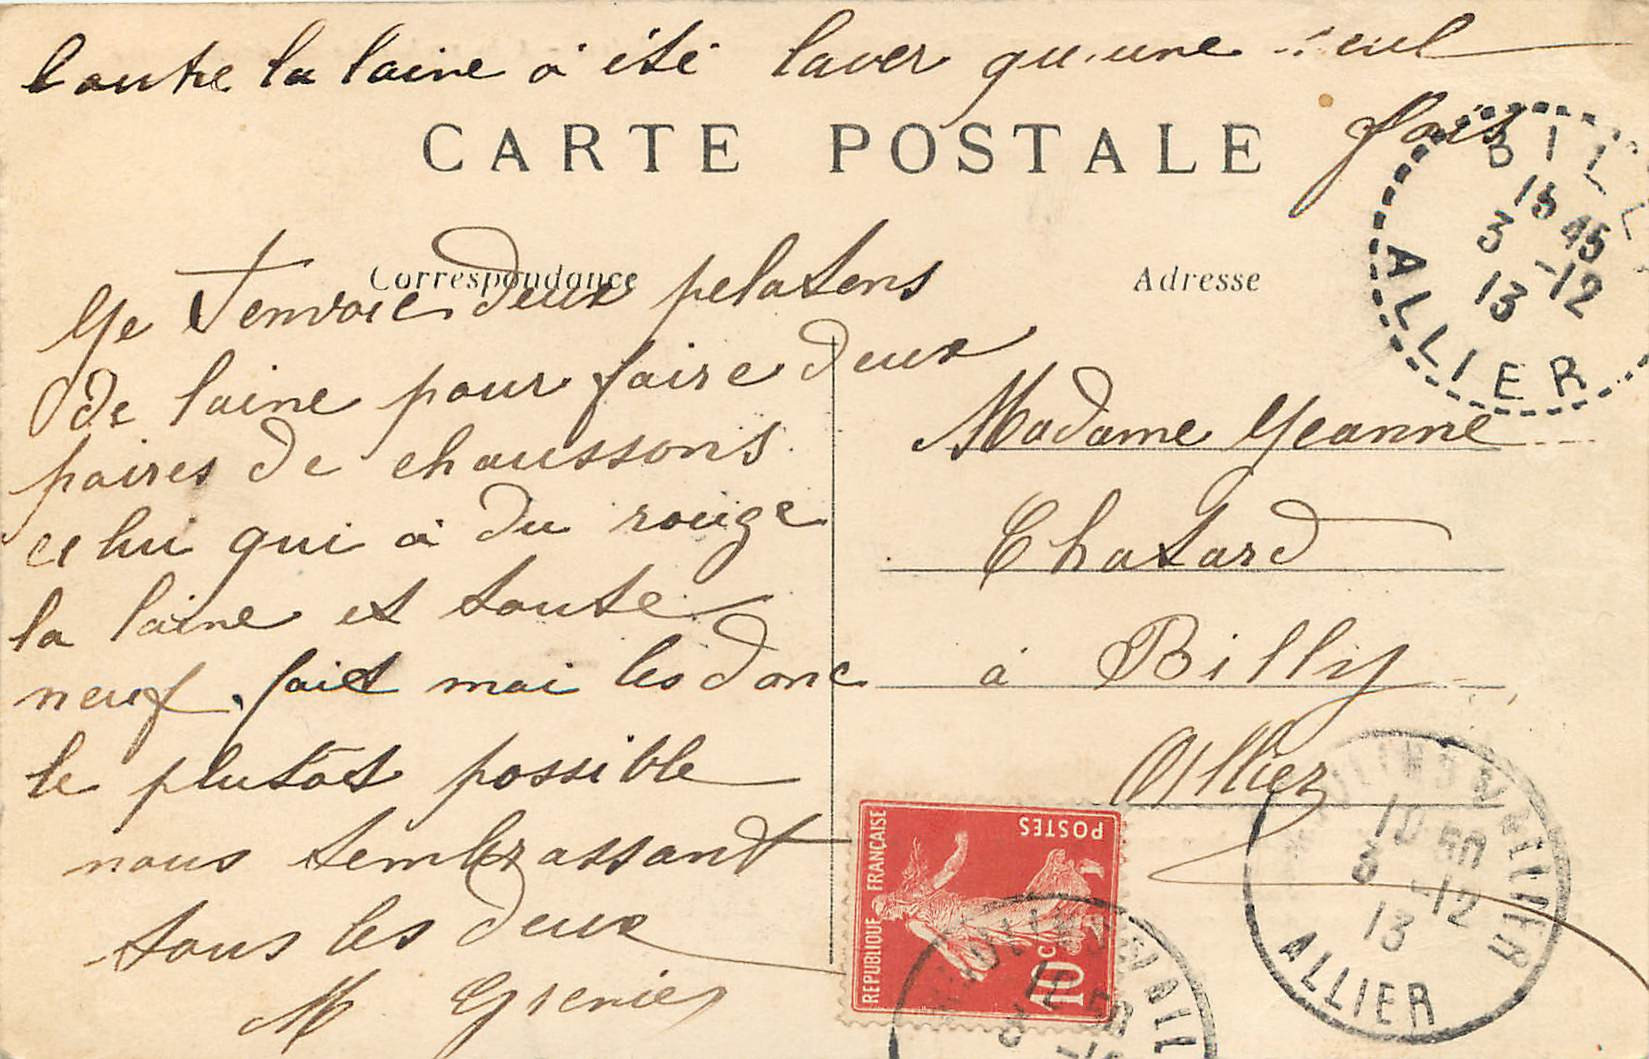 toute la laine à été laver qu'une seul
fois
CARTE POSTALE
Correspondance
Adresse
Je t'envoie deux pelatons
de laine pour faire deux
paires de chaussons
celui qui à du rouge
la laine et toute
neuf. fait moi les donc
le plutôt possible
nous t'embrassant
tous les deux
M Grenier
Madame Jeanne
Chatard
à Billy
Allier
BILLY
15 45
3 -12
13
ALLIER
POSTES
REPUBLIQUE FRANÇAISE
10 c
MOULINS S/ ALLIER
3 -12
13
ALLIER